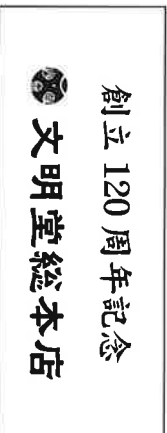 創立120周年記念
文明堂総本店